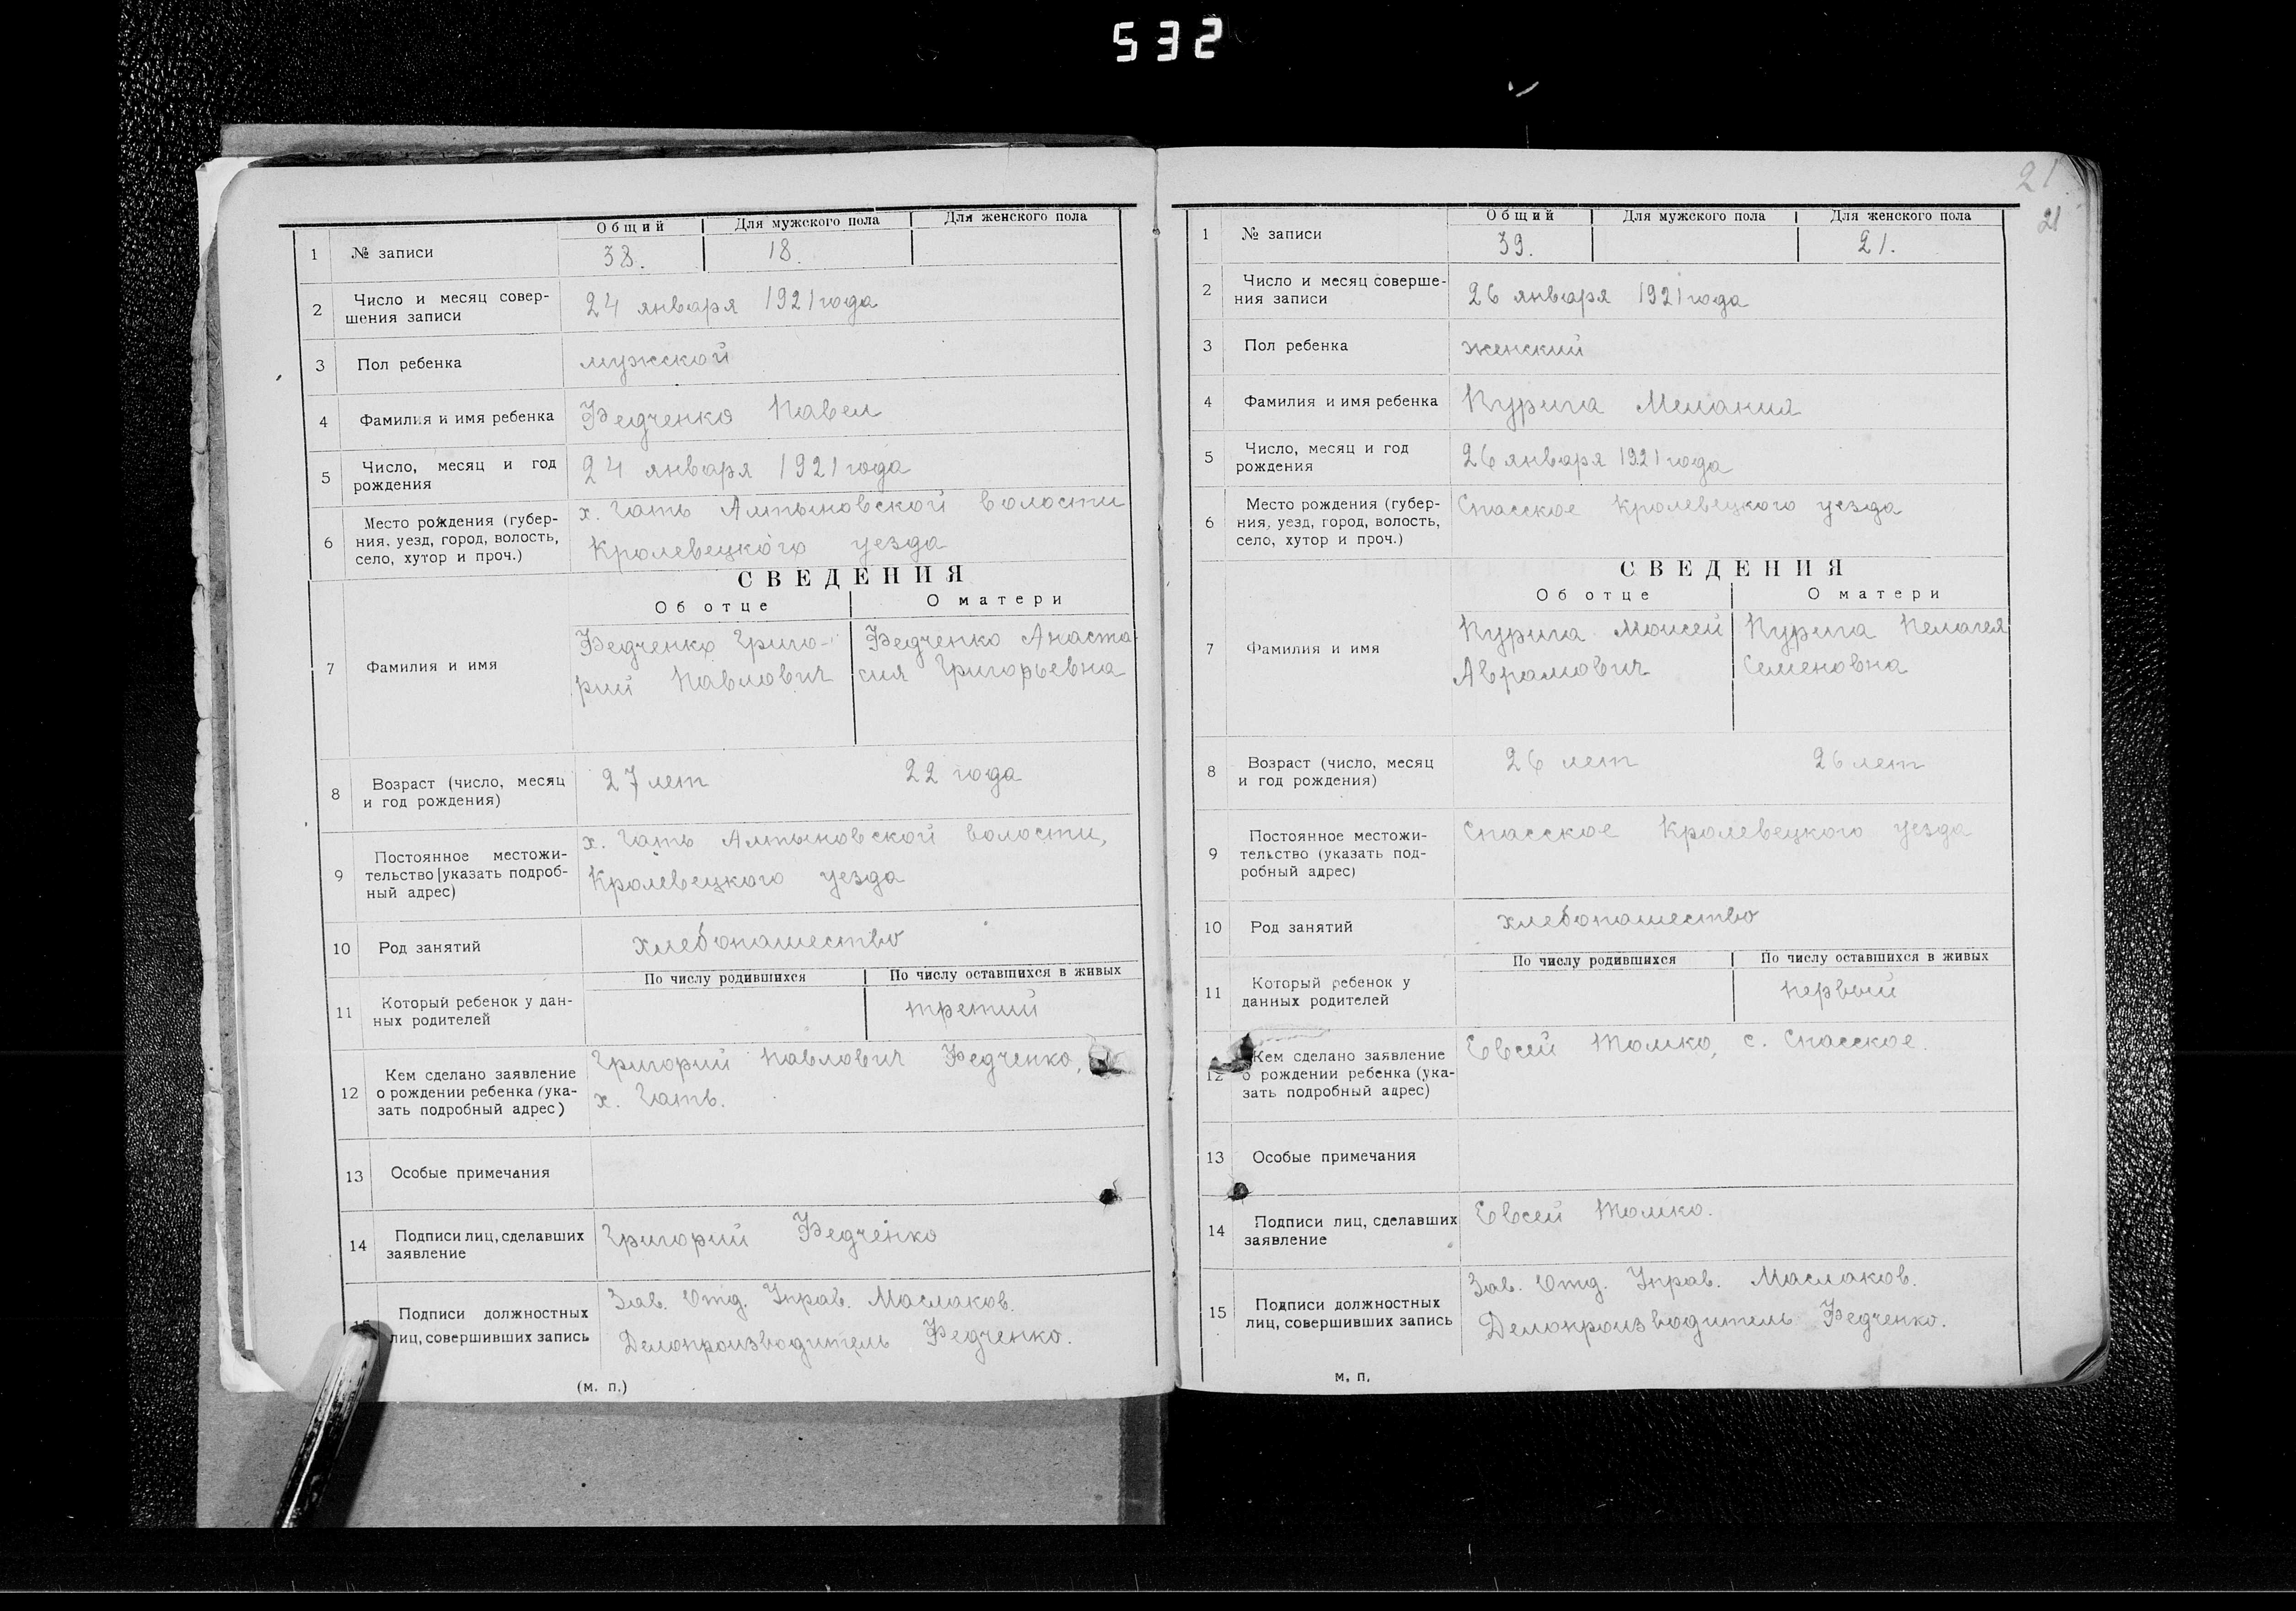 532
Общий Для мужского пола Для женского пола
1 № записи 38. 18.
2 Число и месяц совер-
шения записи
24 января 1921 года
3 Пол ребенка мужской
4 Фамилия и имя ребенка Федченко Павел
5 Число, месяц и год
рождения
24 января 1921 года
6 Место рождения (губер-
ния, уезд, город, волость,
село, хутор и проч.)
х. Гать Алтыновской волости
Кролевецкого уезда
СВЕДЕНИЯ
Об отце О матери
7 Фамилия и имя
Федченко Григо- Федченко Анаста
рий Павлович сия Григорьевна
8 Возраст (число, месяц
и год рождения)
27 лет 22 года
9 Постоянное местожи-
тельство [указать подроб-
ный адрес)
х. Гать Алтыновской волости,
Кролевецкого уезда
10 Род занятий хлебопашество
По числу родившихся По числу оставшихся в живых
11 Который ребенок у дан-
ных родителей
третий
12 Кем сделано заявление
о рождении ребенка (ука-
зать подробный адрес)
Григорий Павлович Федченко,
х. Гать.
13 Особые примечания
14 Подписи лиц, сделавших
заявление
Григорий Федченко
15 Подписи должностных
лиц, совершивших запись
Зав. Отд. Управ. Маслаков.
Делопроизводитель Федченко.
(м. п.)
21
21
Общий Для мужского пола Для женского пола
1 № записи 39. 21.
2 Число и месяц соверше-
ния записи
26 января 1921 года
3 Пол ребенка женский
4 Фамилия и имя ребенка Курила Мелания
5 Число, месяц и год
рождения
26 января 1921 года
6 Место рождения (губер-
ния, уезд, город, волость,
село, хутор и проч.)
Спасское Кролевецкого уезда
СВЕДЕНИЯ
Об отце О матери
7 Фамилия и имя
Курила Моисей Курила Пелагея
Аврамович Семеновна
8 Возраст (число, месяц
и год рождения)
26 лет 26 лет
9 Постоянное местожи-
тельство (указать под-
робный адрес)
Спасское Кролевецкого уезда
10 Род занятий хлебопашество
По числу родившихся По числу оставшихся в живых
11 Который ребенок у
данных родителей
первый
12 Кем сделано заявление
о рождении ребенка (ука-
зать подробный адрес)
Евсей Томко, с. Спасское.
13 Особые примечания
14 Подписи лиц, сделавших
заявление
Евсей Томко.
15 Подписи должностных
лиц, совершивших запись
Зав. Отд. Управ. Маслаков.
Делопроизводитель Федченко.
м. п.